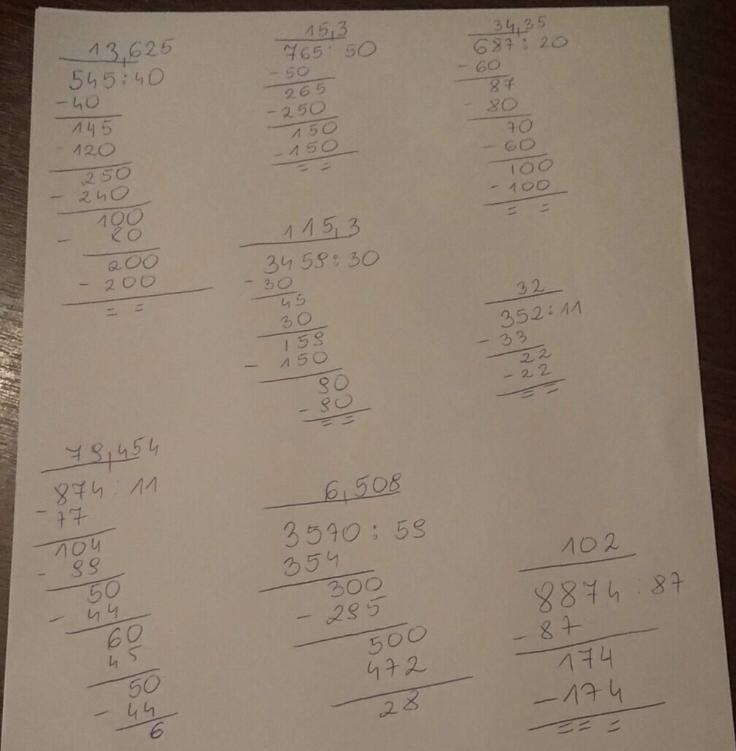 13,625
545:40
-40
145
-120
250
-240
100
- 80
200
- 200
= =
15,3
765:50
-50
265
-250
150
-150
= =
34,35
687:20
-60
87
- 80
70
- 60
100
- 100
= =
115,3
3459:30
-30
45
30
159
- 150
90
- 90
= =
32
352:11
-33
22
-22
= =
79,454
874:11
-77
104
- 99
50
- 44
60
45
50
- 44
6
6,508
3570:59
354
300
- 295
500
472
28
102
8874:87
-87
174
-174
= = =